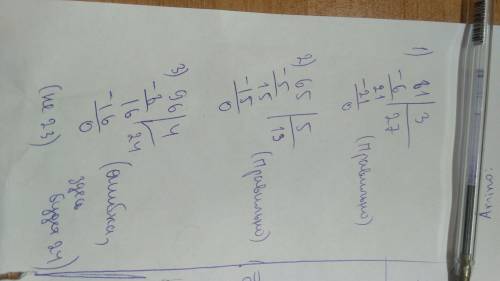 1) 81 | 3
-6 | 27
21
-21
0
(Правильно)
2) 65 | 5
-5 | 13
15
-15
0
(Правильно)
3) 96 | 4
-8 | 24
16
-16
0
(ошибка,
здесь
будет 24)
(не 23)